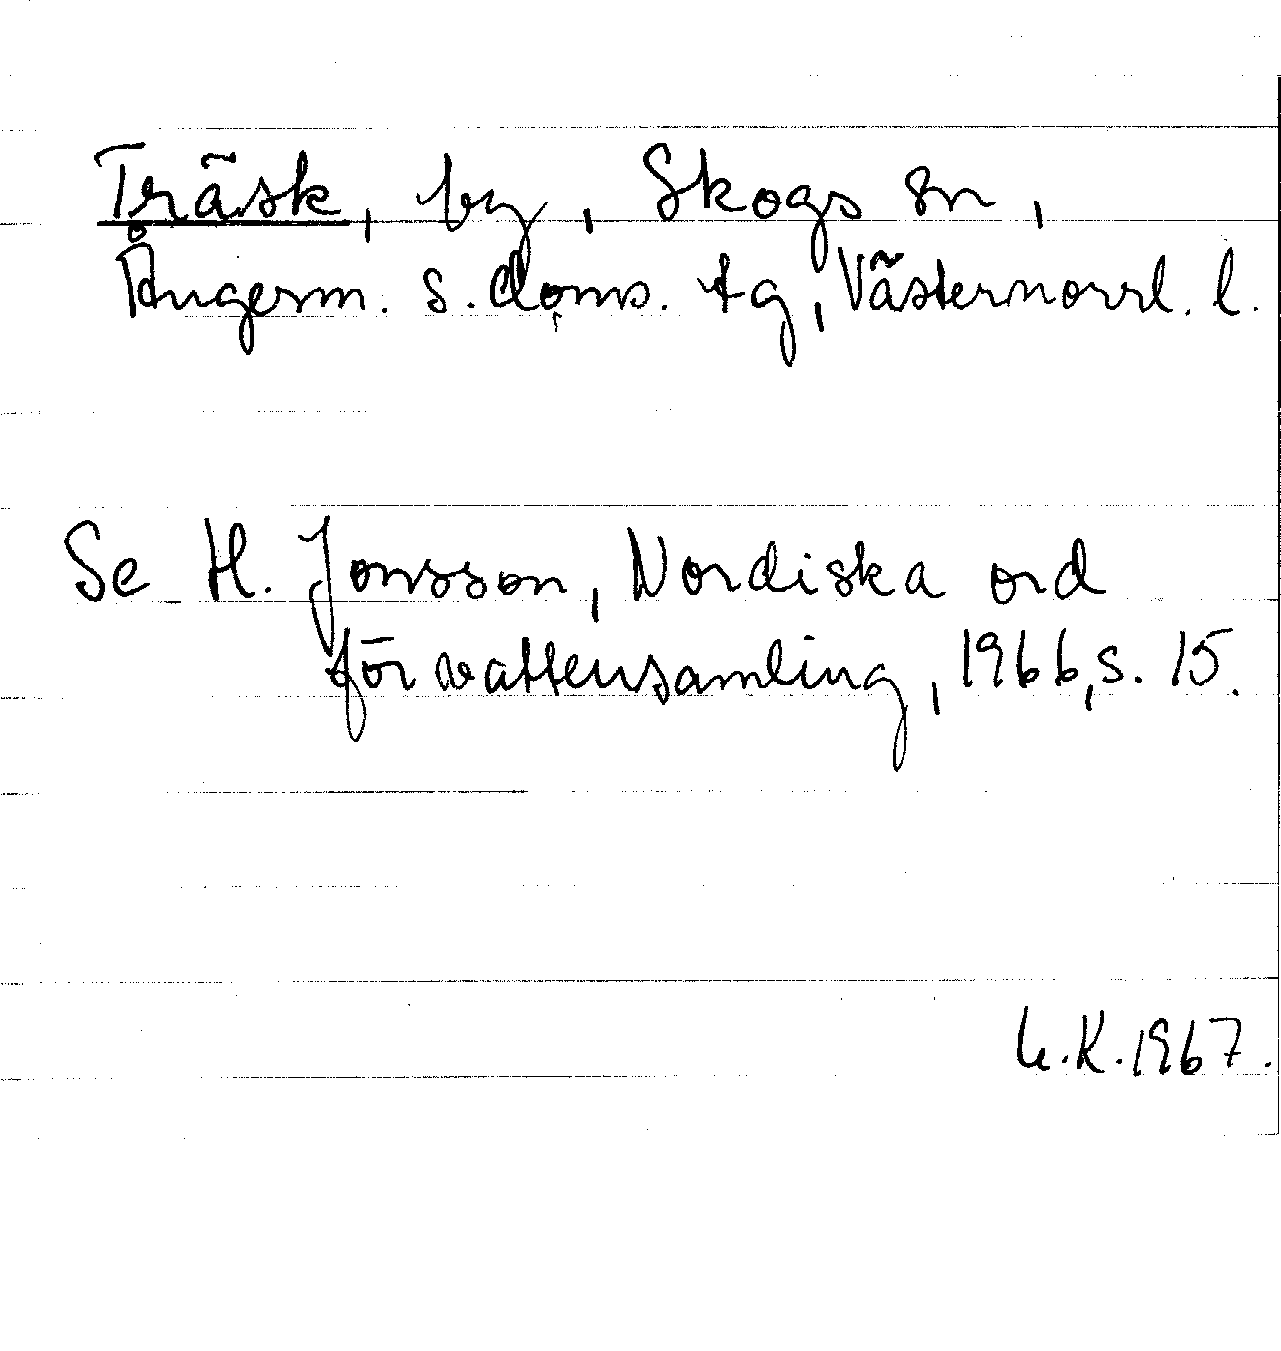 Träsk, by, Skogs sn,
Ångerm. s. doms. tg, Västernorrl. l.
Se H. Jonsson, Nordiska ord
för vattensamling, 1966, s. 15.
K. 1967.